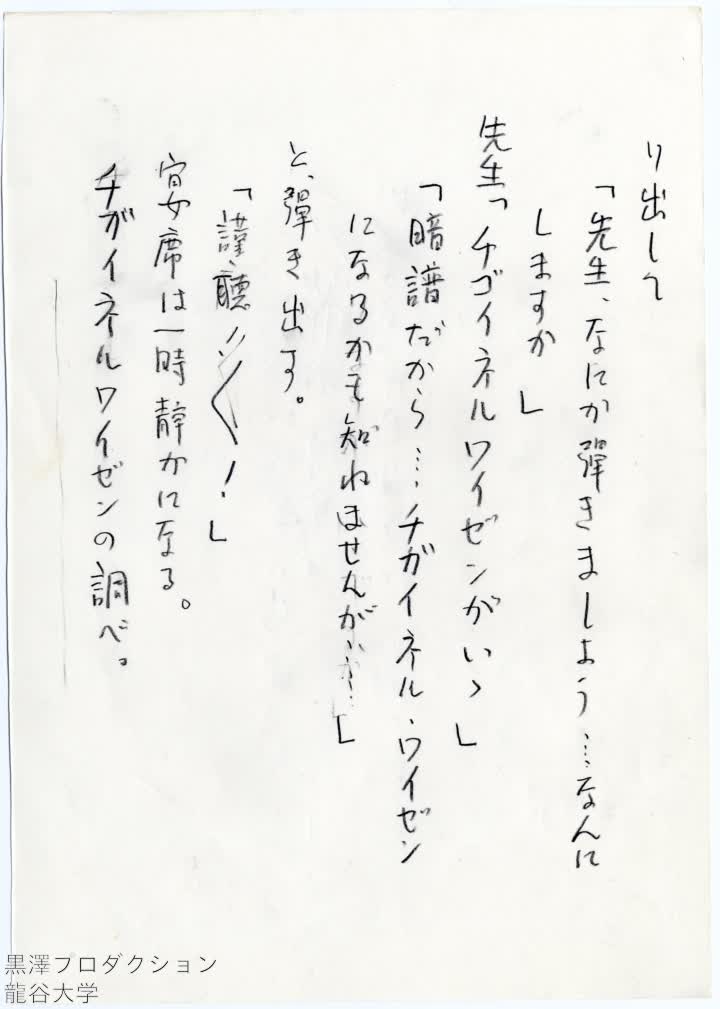 り出して
「先生、なにか彈きましよう…なんに
しますか」
先生「チゴイネルワイゼンがいゝ」
「暗譜だから…チガイネル・ワイゼン
になるかも知れませんが…」
と、彈き出す。
「謹聽〳〵！」
宴席は一時静かになる。
チガイネルワイゼンの調べ。
黒澤プロダクション
龍谷大学